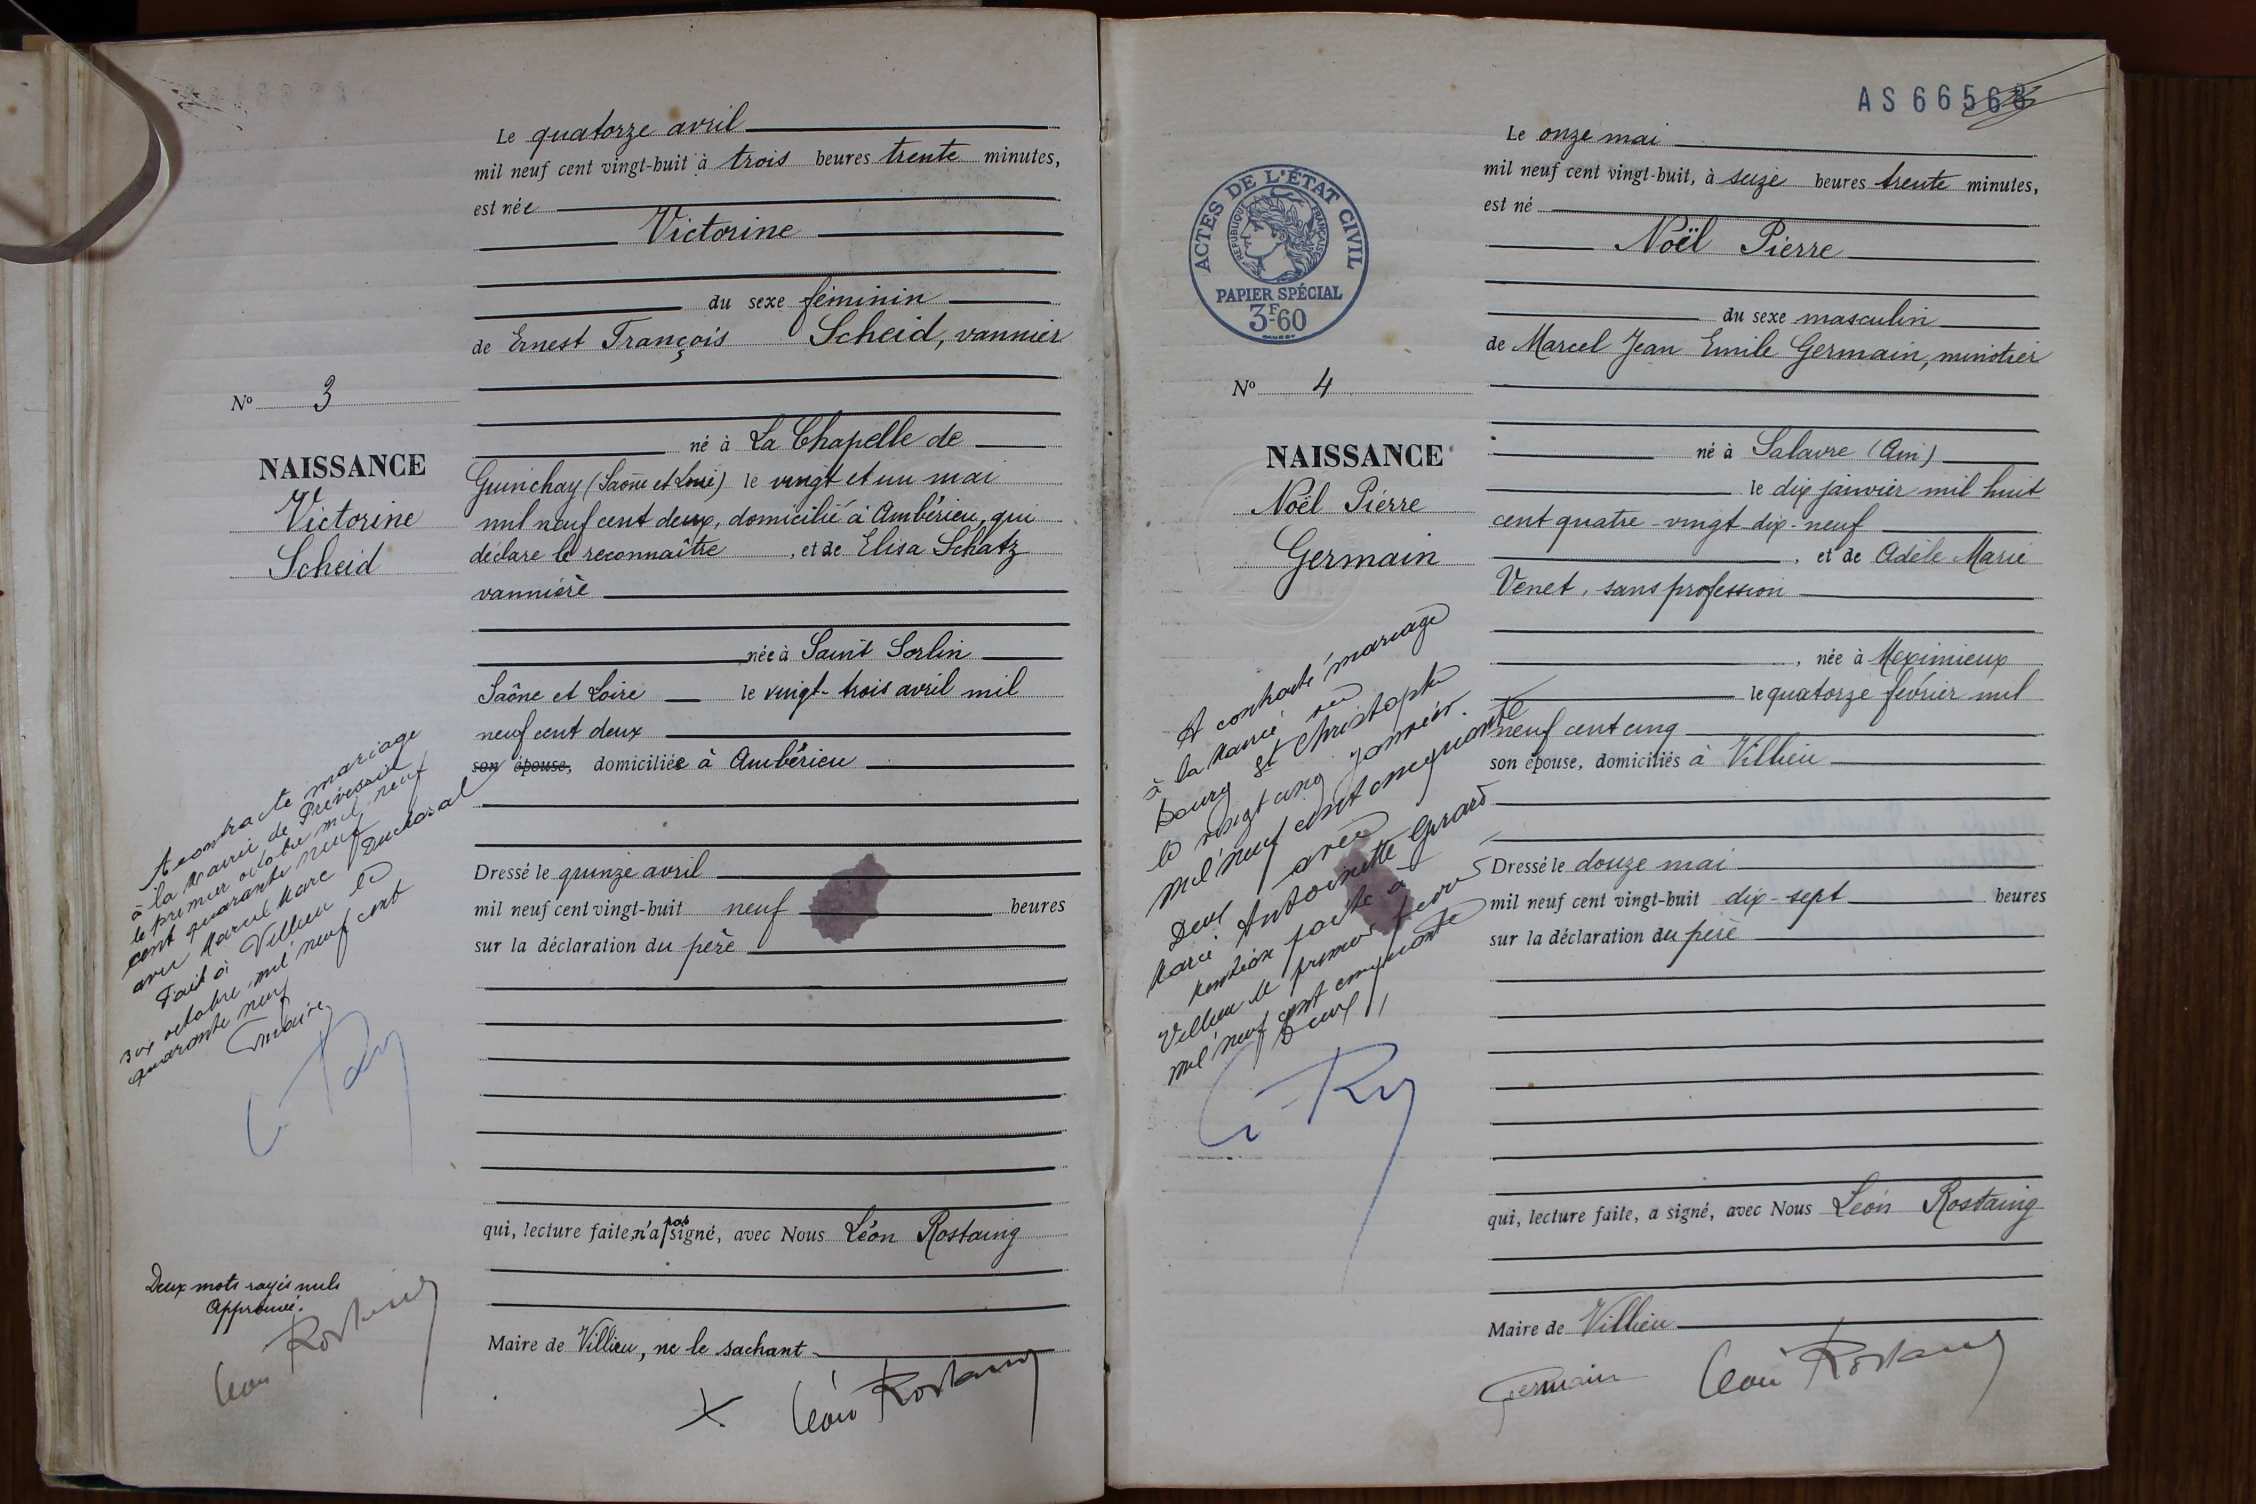 Le quatorze avril
mil neuf cent vingt-huit à trois heures trente minutes,
est née
Victorine
du sexe féminin
de Ernest François Scheid, vannier
né à La Chapelle de
Guinchay (Saône et Loire) le vingt et un mai
mil neuf cent deux, domicilié à Ambérieu, qui
déclare le reconnaître, et de Elisa Schatz
vannière
née à Saint Sorlin
Saône et Loire le vingt-trois avril mil
neuf cent deux
son épouse, domiciliée à Ambérieu
Dressé le quinze avril
mil neuf cent vingt-huit neuf heures
sur la déclaration du père
qui, lecture faite, n'a pas signé, avec Nous Léon Rostaing
Maire de Villieu, ne le sachant
Léon Rostaing
Nº 3
NAISSANCE
Victorine
Scheid
A contracté mariage
à la Mairie de
le premier octobre mil neuf
cent quarante neuf
avec Marcel Marc
Fait à Villieu le
six octobre mil neuf cent
quarante neuf
Deux mots rayés nuls
Approuvé.
Léon Rostaing
AS 66568
ACTES DE L'ÉTAT CIVIL
RÉPUBLIQUE FRANÇAISE
PAPIER SPÉCIAL
3F60
Le onze mai
mil neuf cent vingt-huit, à seize heures trente minutes,
est né
Noël Pierre
du sexe masculin
de Marcel Jean Emile Germain, minotier
né à Salavre (Ain)
le dix janvier mil huit
cent quatre-vingt dix-neuf
, et de Adèle Marie
Venet, sans profession
, née à Meximieux
le quatorze février mil
neuf cent cinq
son épouse, domiciliés à Villieu
Dressé le douze mai
mil neuf cent vingt-huit dix-sept heures
sur la déclaration du père
qui, lecture faite, a signé, avec Nous Léon Rostaing
Maire de Villieu
Germain Léon Rostaing
Nº 4
NAISSANCE
Noël Pierre
Germain
A contracté mariage
à la Mairie de
Bourg St Christophe
le vingt cinq janvier
mil neuf cent cinquante
deux avec
Marie Antoinette Girard
Mention faite à
Villieu le premier
mil neuf cent cinquante
deux